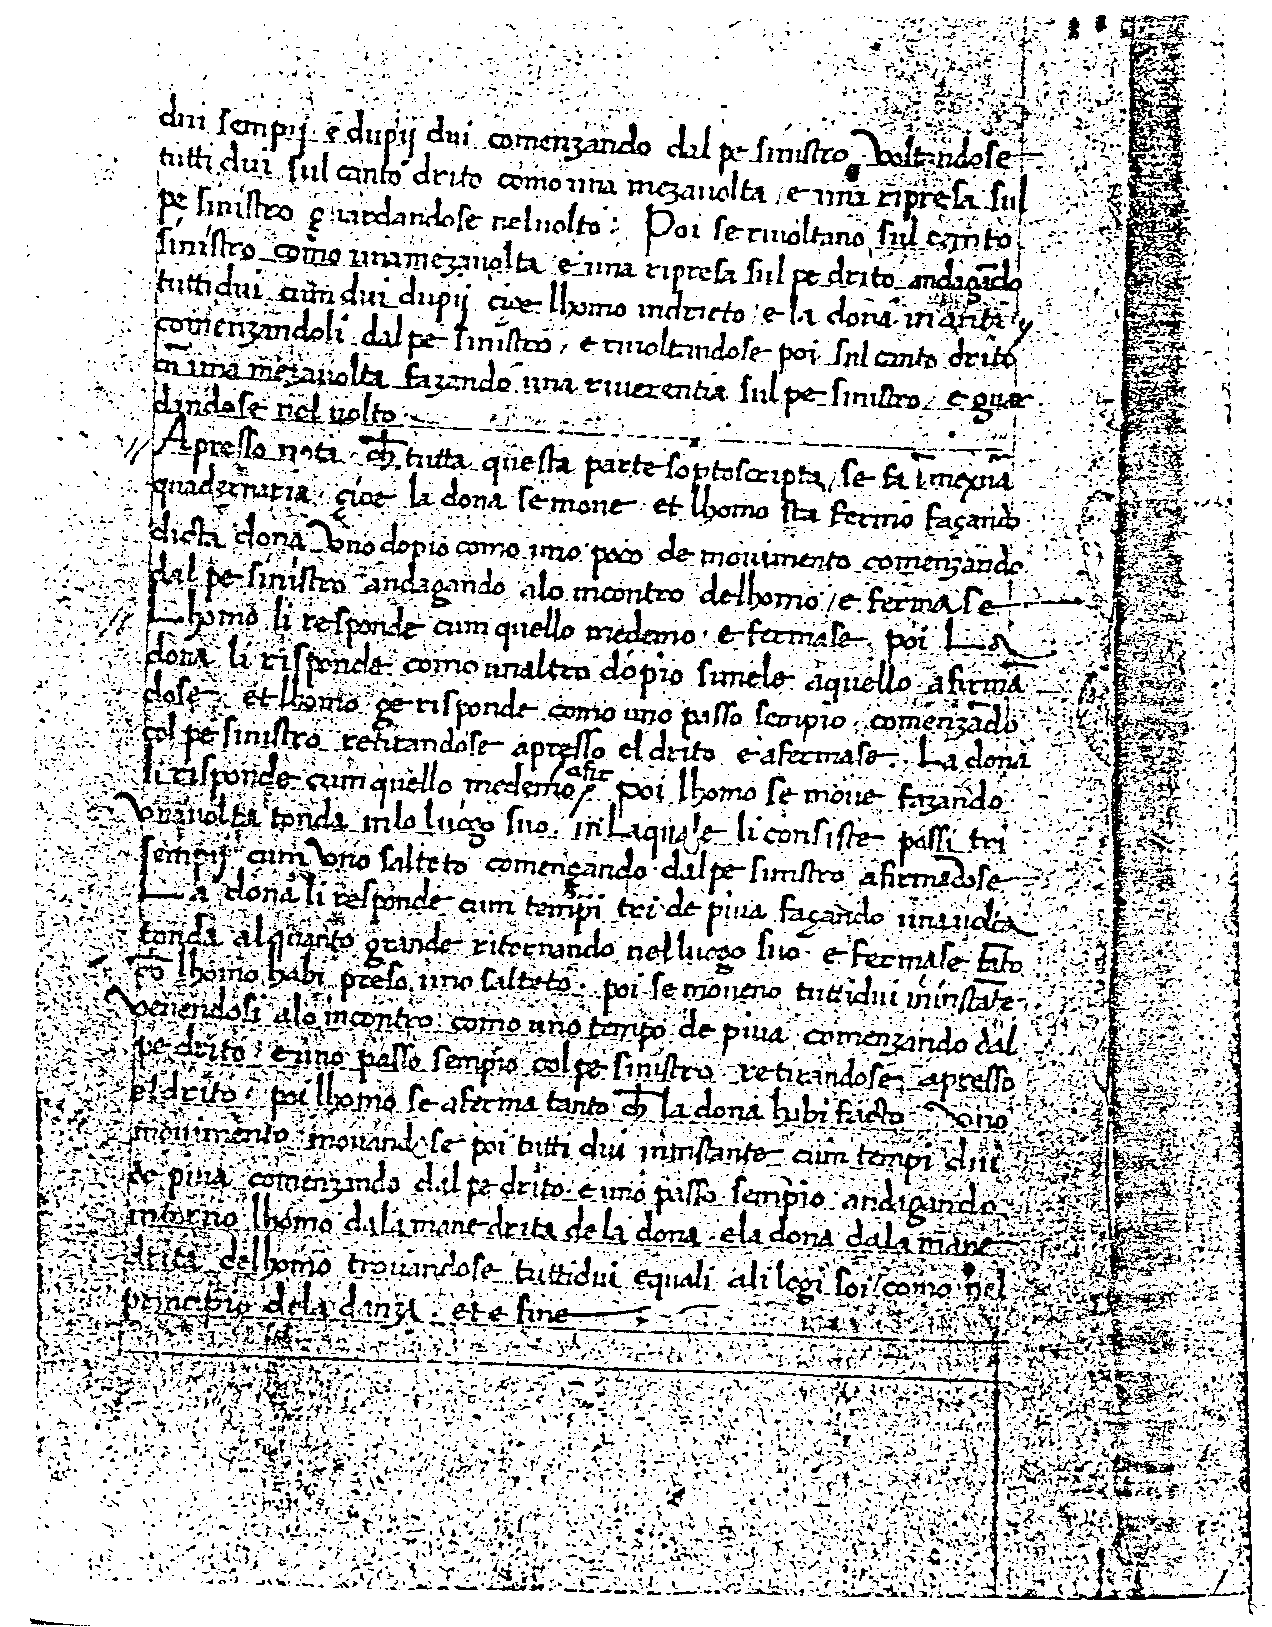 dui sempij e dupij dui comenzando dal pe sinistro voltandose
tutti dui sul canto drito como una mezavolta, e una ripresa sul
pe sinistro guardandose nel volto: Poi se rivoltano sul canto
sinistro como una mezavolta e una ripresa sul pe drito andagãdo
tutti dui cum dui dupij cioe lhomo indrieto e la dona in anti
comenzandoli dal pe sinistro, e rivoltandose poi sul canto drito
una mezavolta fazando una riverentia sul pe sinistro, e guar
dandose nel volto.
Apresso nota ch tutta questa parte soptoscripta, se fa ĩ mexua
quadernaria, cioe la dona se move et lhomo sta fermo façando
dicta dona Uno dopio como uno poco de movimento comenzando
dal pe sinistro andagando alo incontro delhomo, e ferma se
Lhomo li responde cum quello medemo. e fermase, poi La
dona li risponde como unaltro dopio simele aquello afirmã
dose, et lhomo ge risponde como uno passo sempio, comenzãdo
col pe sinistro retirandose apresso el drito e afermase. La dona
li risponde cum quello medemo, afir poi lhomo se move fazando
Una volta tonda in lo luogo suo, in Laquale li consiste passi tri
sempij cum Uno salteto començando dal pe sinistro afirmãdose
La dona li responde cum tempi tri de piva façando una volta
tonda alquanto grande ritornando nel luogo suo e fermase tãto
lhomo habi preso uno salteto. poi se moveno tutti dui in instate
Venendosi alo incontro como uno tempo de piva comenzando dal
pe drito, e uno passo sempio col pe sinistro retirandose apresso
el drito, poi lhomo se aferma tanto ch la dona habi facto Uno
movimento movandose poi tutti dui in instante cum tempi dui
de piva comenzando dal pe drito e uno passo sempio andagando
intorno lhomo dala mane drita de la dona e la dona dala mane
drita delhomo trovandose tutti dui equali ali logi soi como nel
principio dela danza. et e fine